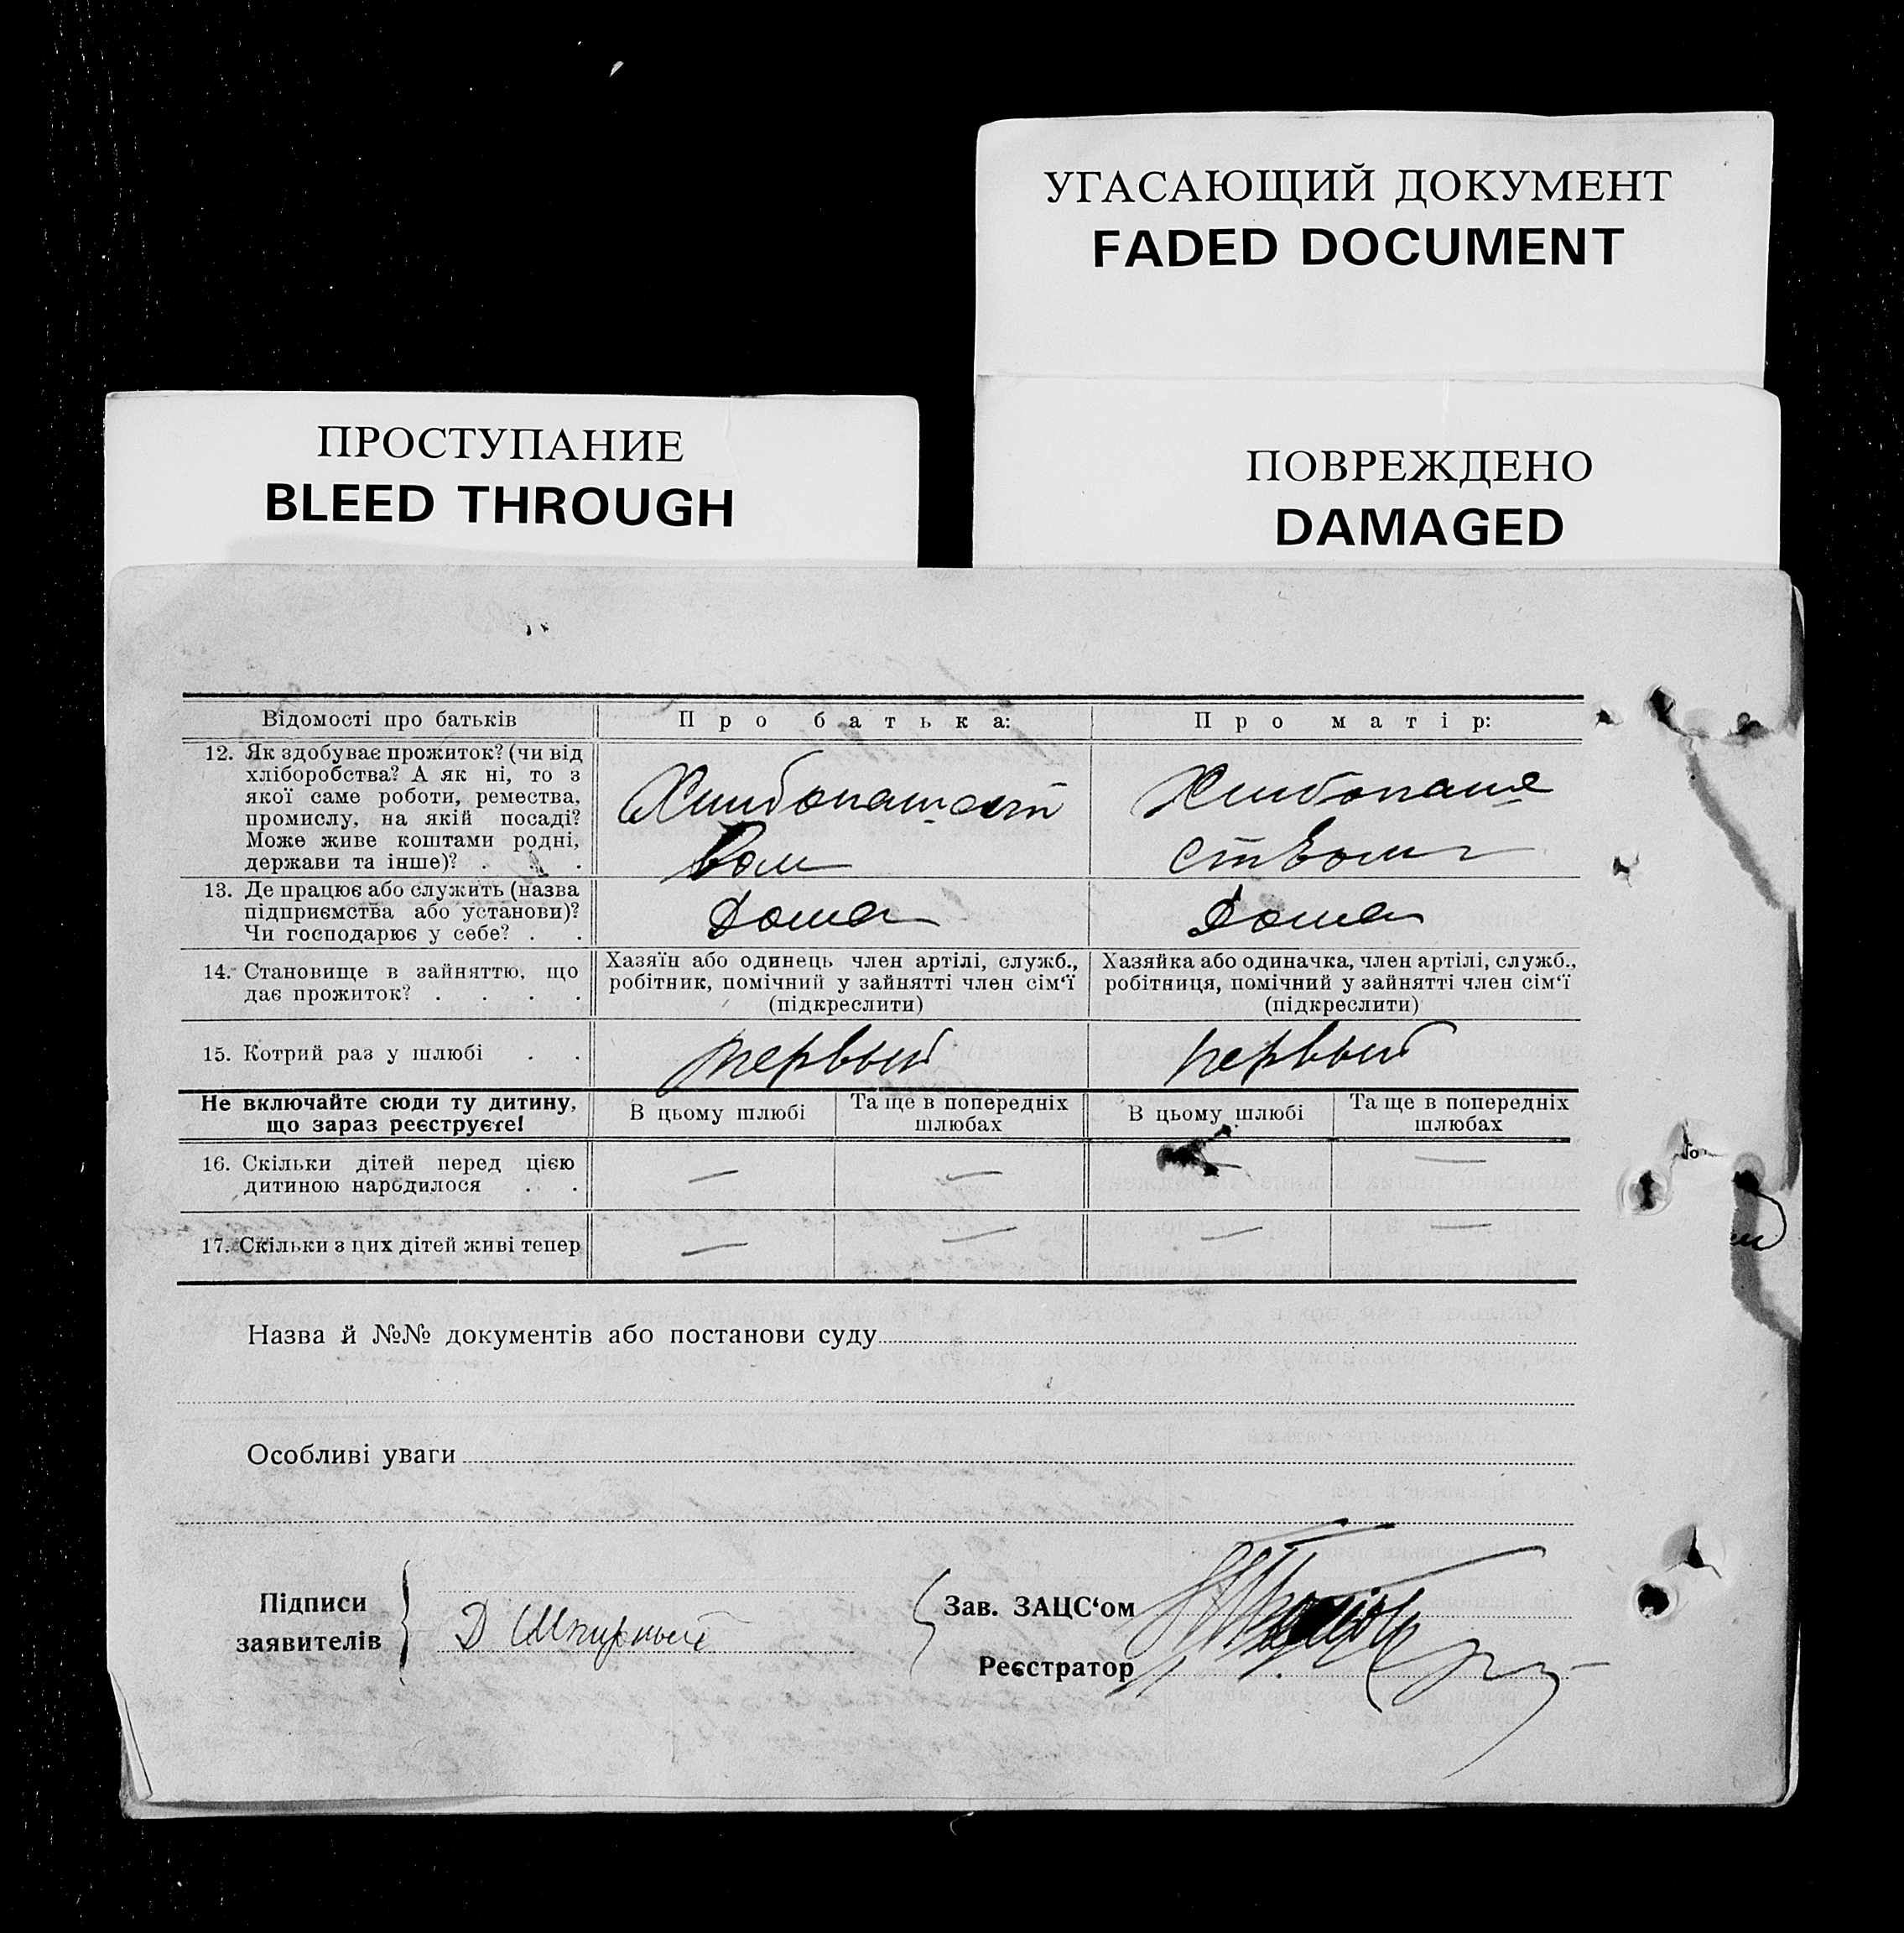 УГАСАЮЩИЙ ДОКУМЕНТ
FADED DOCUMENT
ПРОСТУПАНИЕ
BLEED THROUGH
ПОВРЕЖДЕНО
DAMAGED
Відомості про батьків
Про батька:
Про матір:
12. Як здобуває прожиток? (чи від
хліборобства? А як ні, то з
якої саме роботи, ремества,
промислу, на якій посаді?
Може живе коштами родні,
держави та інше)? . . .
Хлибопашест
вом
Хлибопаше
ством
13. Де працює або служить (назва
підприємства або установи)?
Чи господарює у себе? . .
Дома
Дома
14. Становище в зайняттю, що
дає прожиток? . . . .
Хазяїн або одинець член артілі, служб.,
робітник, помічний у зайнятті член сім'ї
(підкреслити)
Хазяйка або одиначка, член артілі, служб.,
робітниця, помічний у зайнятті член сім'ї
(підкреслити)
15. Котрий раз у шлюбі . .
первый
первый
Не включайте сюди ту дитину,
що зараз реєструєте!
В цьому шлюбі
Та ще в попередніх
шлюбах
В цьому шлюбі
Та ще в попередніх
шлюбах
16. Скільки дітей перед цією
дитиною народилося . .
— — —
17. Скільки з цих дітей живі тепер
— — — —
Назва й №№ документів або постанови суду
Особливі уваги
Підписи
заявителів
Д Шкирный
Зав. ЗАЦС'ом
Реєстратор